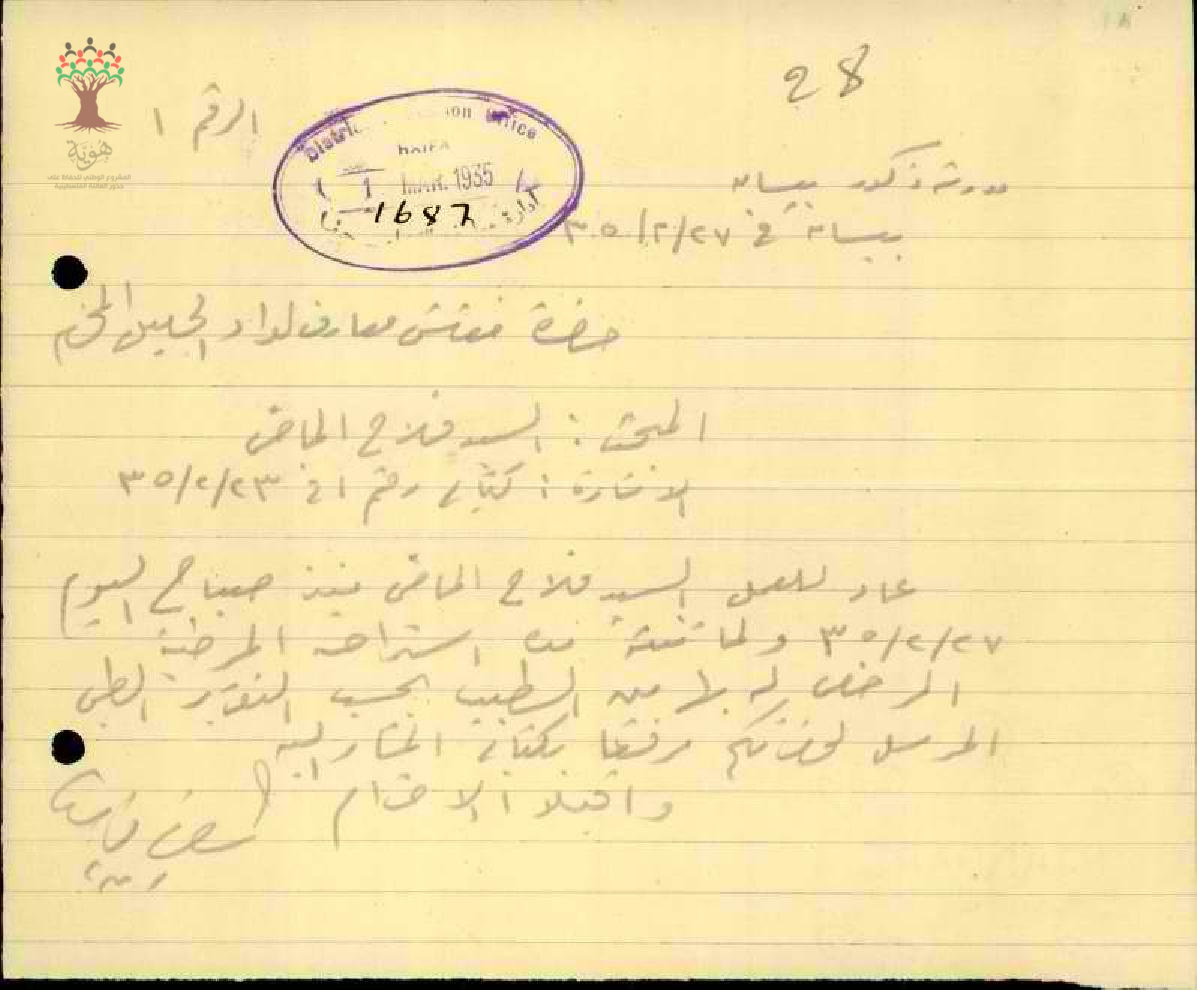 28
هوية
المشروع الوطني للحفاظ على
جذور العائلة الفلسطينية
الرقم ١
District Education Office
Haifa
1 MAR. 1935
1687
مدرسة ذكور بيسان
بيسان في ٣٥/٢/٢٧
حضرة مفتش معارف لواء الجليل المحترم
المبحث : السيد فلاح الماضي
الاشارة : كتابي رقم ١ في ٣٥/٢/٢٣
عاد للعمل السيد فلاح الماضي منذ صباح اليوم
٣٥/٢/٢٧ من استراحته المرضية
المرخص له بها من الطبيب بحسب التقرير الطبي
المرسل لحضرتكم مرفقا بكتابي المشار اليه
واقبلوا الاحترام